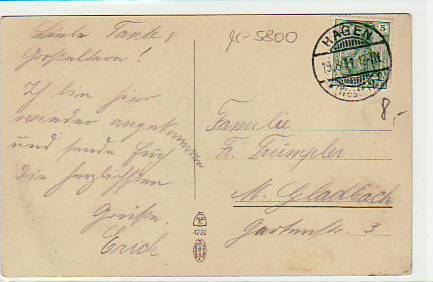 Liebe Tante &
Großeltern!
Ich bin hier
wieder angekommen
und sende Euch
die herzlichsten
Grüße.
Erich
gc-5800
HAGEN
(WESTF.)
5
8,-
Familie
Fr. Trümpler
M. Gladbach
Gartenstr. 3
4731